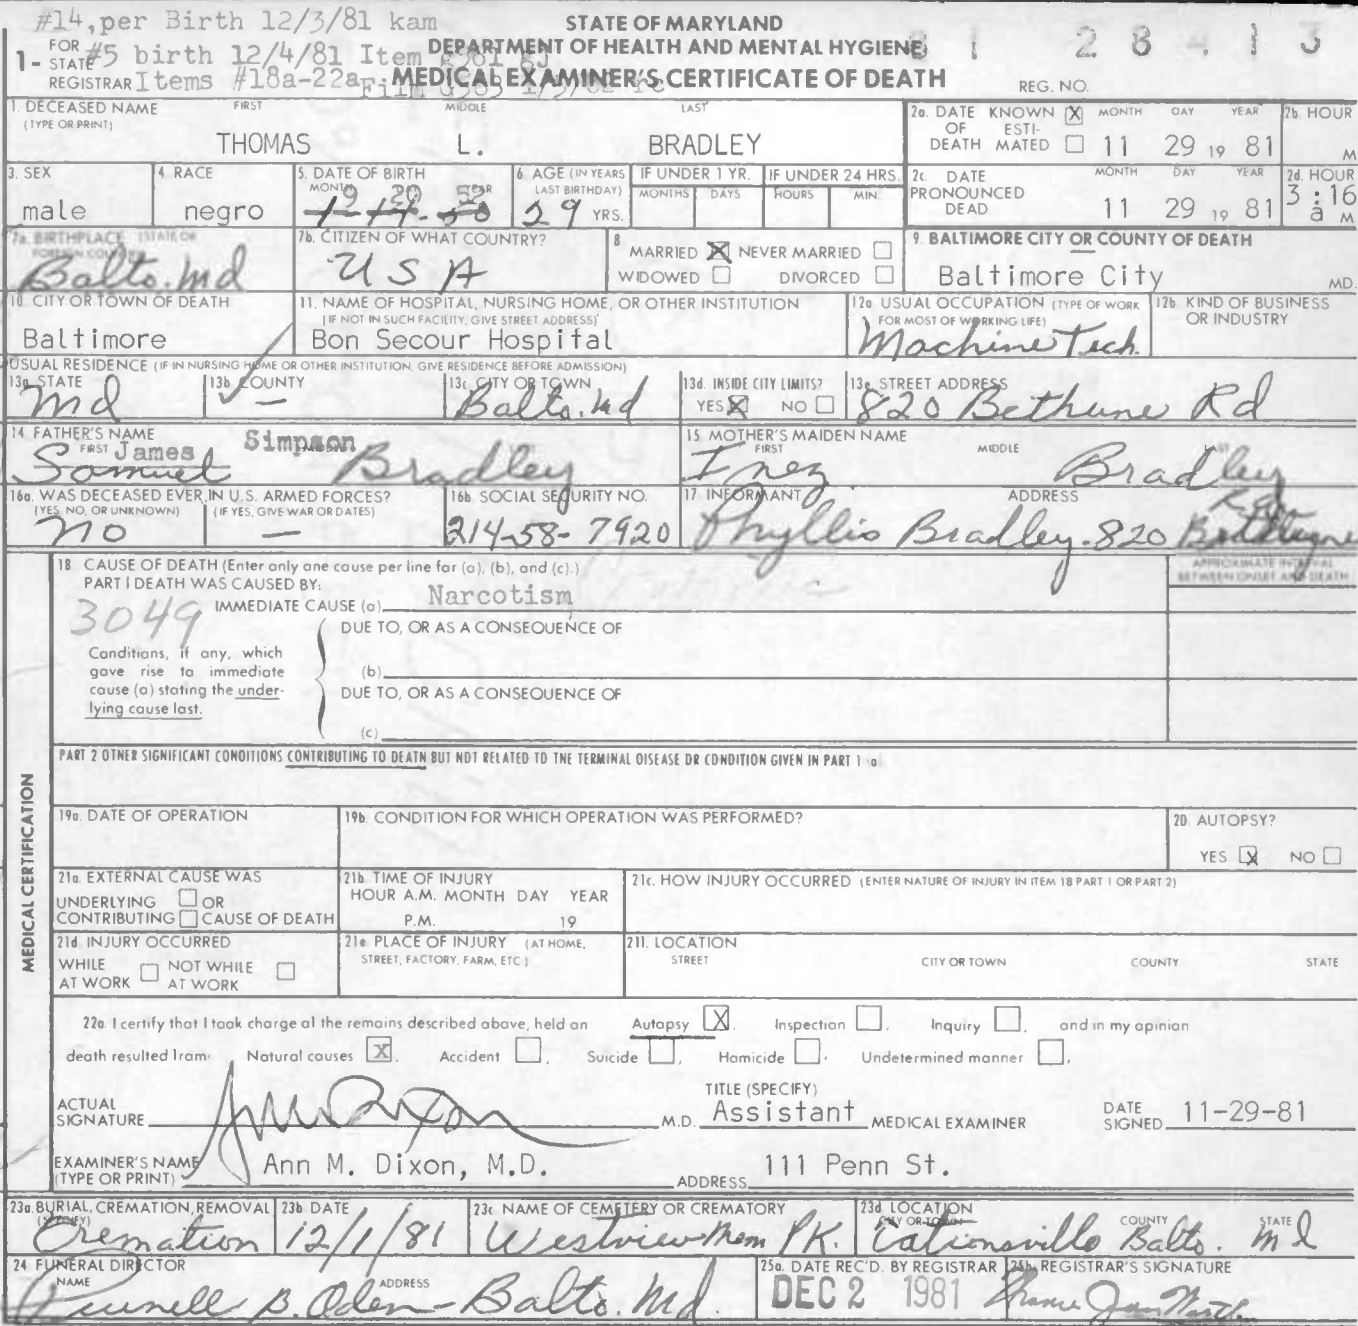 #14, per Birth 12/3/81 kam
STATE OF MARYLAND
1- FOR STATE REGISTRAR
#5 birth 12/4/81 Item
DEPARTMENT OF HEALTH AND MENTAL HYGIENE
81 28413
Items #18a-22a
MEDICAL EXAMINER'S CERTIFICATE OF DEATH
REG. NO.
1. DECEASED NAME (TYPE OR PRINT) FIRST MIDDLE LAST
THOMAS L. BRADLEY
2a. DATE OF DEATH KNOWN [X] ESTIMATED [ ] MONTH DAY YEAR 11 29 19 81
2b. HOUR M
3. SEX male
4. RACE negro
5. DATE OF BIRTH MONTH YEAR 9 20 52
6. AGE (IN YEARS LAST BIRTHDAY) 29 YRS.
IF UNDER 1 YR. MONTHS DAYS
IF UNDER 24 HRS. HOURS MIN.
2c. DATE PRONOUNCED DEAD MONTH DAY YEAR 11 29 19 81
2d. HOUR 3:16 a M
7a. BIRTHPLACE (STATE OR FOREIGN COUNTRY) Balto. Md
7b. CITIZEN OF WHAT COUNTRY? USA
8 MARRIED [X] NEVER MARRIED [ ]
WIDOWED [ ] DIVORCED [ ]
9. BALTIMORE CITY OR COUNTY OF DEATH
Baltimore City MD.
10. CITY OR TOWN OF DEATH Baltimore
11. NAME OF HOSPITAL, NURSING HOME, OR OTHER INSTITUTION
(IF NOT IN SUCH FACILITY, GIVE STREET ADDRESS)
Bon Secour Hospital
12a. USUAL OCCUPATION (TYPE OF WORK FOR MOST OF WORKING LIFE) Machine Tech.
12b. KIND OF BUSINESS OR INDUSTRY
USUAL RESIDENCE (IF IN NURSING HOME OR OTHER INSTITUTION, GIVE RESIDENCE BEFORE ADMISSION)
13a. STATE Md
13b. COUNTY —
13c. CITY OR TOWN Balto. Md
13d. INSIDE CITY LIMITS? YES [X] NO [ ]
13e. STREET ADDRESS 820 Bethune Rd
14 FATHER'S NAME FIRST James Simpson
Samuel Bradley
15 MOTHER'S MAIDEN NAME FIRST MIDDLE
Inez Bradley
16a. WAS DECEASED EVER IN U.S. ARMED FORCES?
(YES, NO, OR UNKNOWN) (IF YES, GIVE WAR OR DATES)
no —
16b. SOCIAL SECURITY NO. 214-58-7920
17 INFORMANT ADDRESS
Phyllis Bradley-820
18 CAUSE OF DEATH (Enter only one cause per line for (a), (b), and (c).)
APPROXIMATE INTERVAL BETWEEN ONSET AND DEATH
PART I DEATH WAS CAUSED BY:
IMMEDIATE CAUSE (a) Narcotism
3049
DUE TO, OR AS A CONSEQUENCE OF
Conditions, if any, which gave rise to immediate cause (a) stating the underlying cause last.
(b)
DUE TO, OR AS A CONSEQUENCE OF
(c)
PART 2 OTHER SIGNIFICANT CONDITIONS CONTRIBUTING TO DEATH BUT NOT RELATED TO THE TERMINAL DISEASE OR CONDITION GIVEN IN PART 1 a
MEDICAL CERTIFICATION
19a. DATE OF OPERATION
19b. CONDITION FOR WHICH OPERATION WAS PERFORMED?
20. AUTOPSY?
YES [X] NO [ ]
21a. EXTERNAL CAUSE WAS
UNDERLYING [ ] OR
CONTRIBUTING [ ] CAUSE OF DEATH
21b. TIME OF INJURY
HOUR A.M. MONTH DAY YEAR
P.M. 19
21c. HOW INJURY OCCURRED (ENTER NATURE OF INJURY IN ITEM 18 PART 1 OR PART 2)
21d. INJURY OCCURRED
WHILE AT WORK [ ] NOT WHILE AT WORK [ ]
21e. PLACE OF INJURY (AT HOME, STREET, FACTORY, FARM, ETC.)
21f. LOCATION
STREET CITY OR TOWN COUNTY STATE
22a. I certify that I took charge of the remains described above, held an Autopsy [X], Inspection [ ], Inquiry [ ], and in my opinion
death resulted from: Natural causes [X], Accident [ ], Suicide [ ], Homicide [ ], Undetermined manner [ ],
ACTUAL SIGNATURE Ann Dixon M.D.
TITLE (SPECIFY) Assistant MEDICAL EXAMINER
DATE SIGNED 11-29-81
EXAMINER'S NAME (TYPE OR PRINT) Ann M. Dixon, M.D.
ADDRESS 111 Penn St.
23a. BURIAL, CREMATION, REMOVAL (SPECIFY) Cremation
23b. DATE 12/1/81
23c. NAME OF CEMETERY OR CREMATORY Westview Mem Pk.
23d. LOCATION CITY OR TOWN COUNTY STATE
Cationsville Balto. Md
24 FUNERAL DIRECTOR
NAME ADDRESS
B. Oden-Balto. Md.
25a. DATE REC'D. BY REGISTRAR DEC 2 1981
25b. REGISTRAR'S SIGNATURE